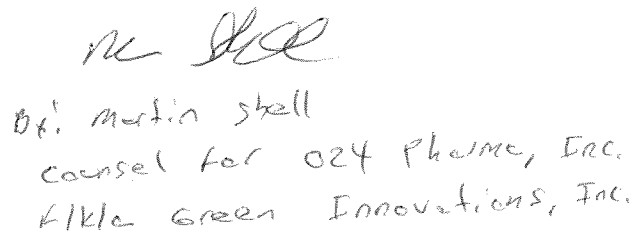 By: Martin Shell
Counsel for O24 Pharma, Inc.
f/k/a Green Innovations, Inc.